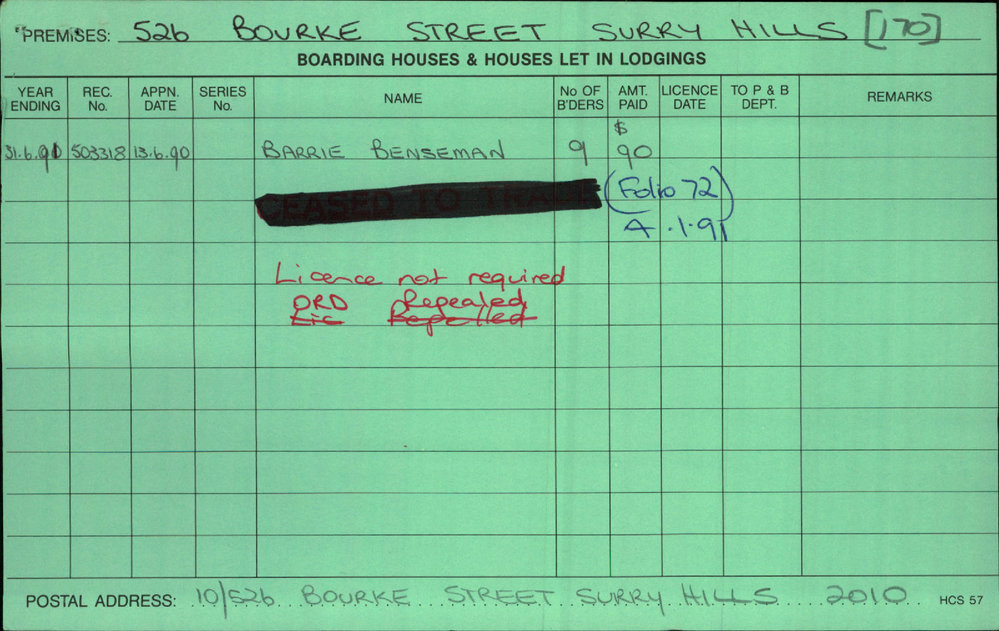 PREMISES: 526 BOURKE STREET SURRY HILLS [170]
BOARDING HOUSES & HOUSES LET IN LODGINGS
YEAR ENDING REC. No. APPN. DATE SERIES No. NAME No OF B'DERS AMT. PAID LICENCE DATE TO P & B DEPT. REMARKS
$
31.6.91 503318 13.6.90 BARRIE BENSEMAN 9 90
CEASED TO TRADE (Folio 72)
A.1.91
Licence not required
ORD Repealed
Lic Repelled
POSTAL ADDRESS: 10/526 BOURKE STREET SURRY HILLS 2010 HCS 57